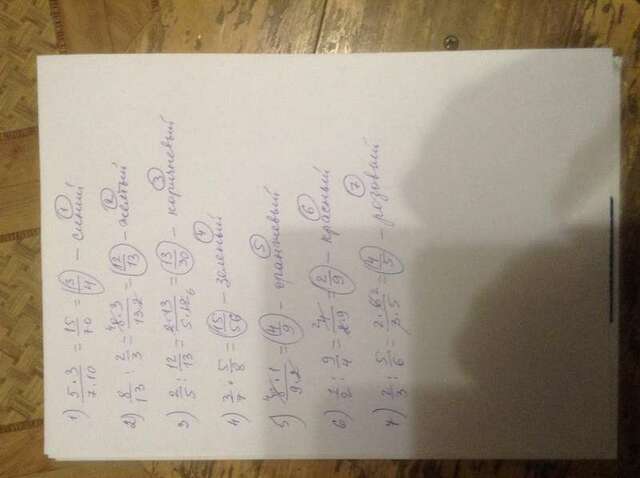 1) 5·3/7·10 = 15/70 = 13/4 – синий 1
2) 8/13 : 2/3 = 8·3/13·2 = 12/13 – желтый 2
3) 2/5 : 12/13 = 2·13/5·12 6 = 13/30 – коричневый 3
4) 3/7 · 5/8 = 15/56 – зеленый 4
5) 8·1/9·2 = 4/9 – оранжевый 5
6) 1/2 : 9/4 = 4/2·9 = 2/9 – красный 6
7) 2/3 : 5/6 = 2·6 2/3·5 = 4/5 – розовый 7